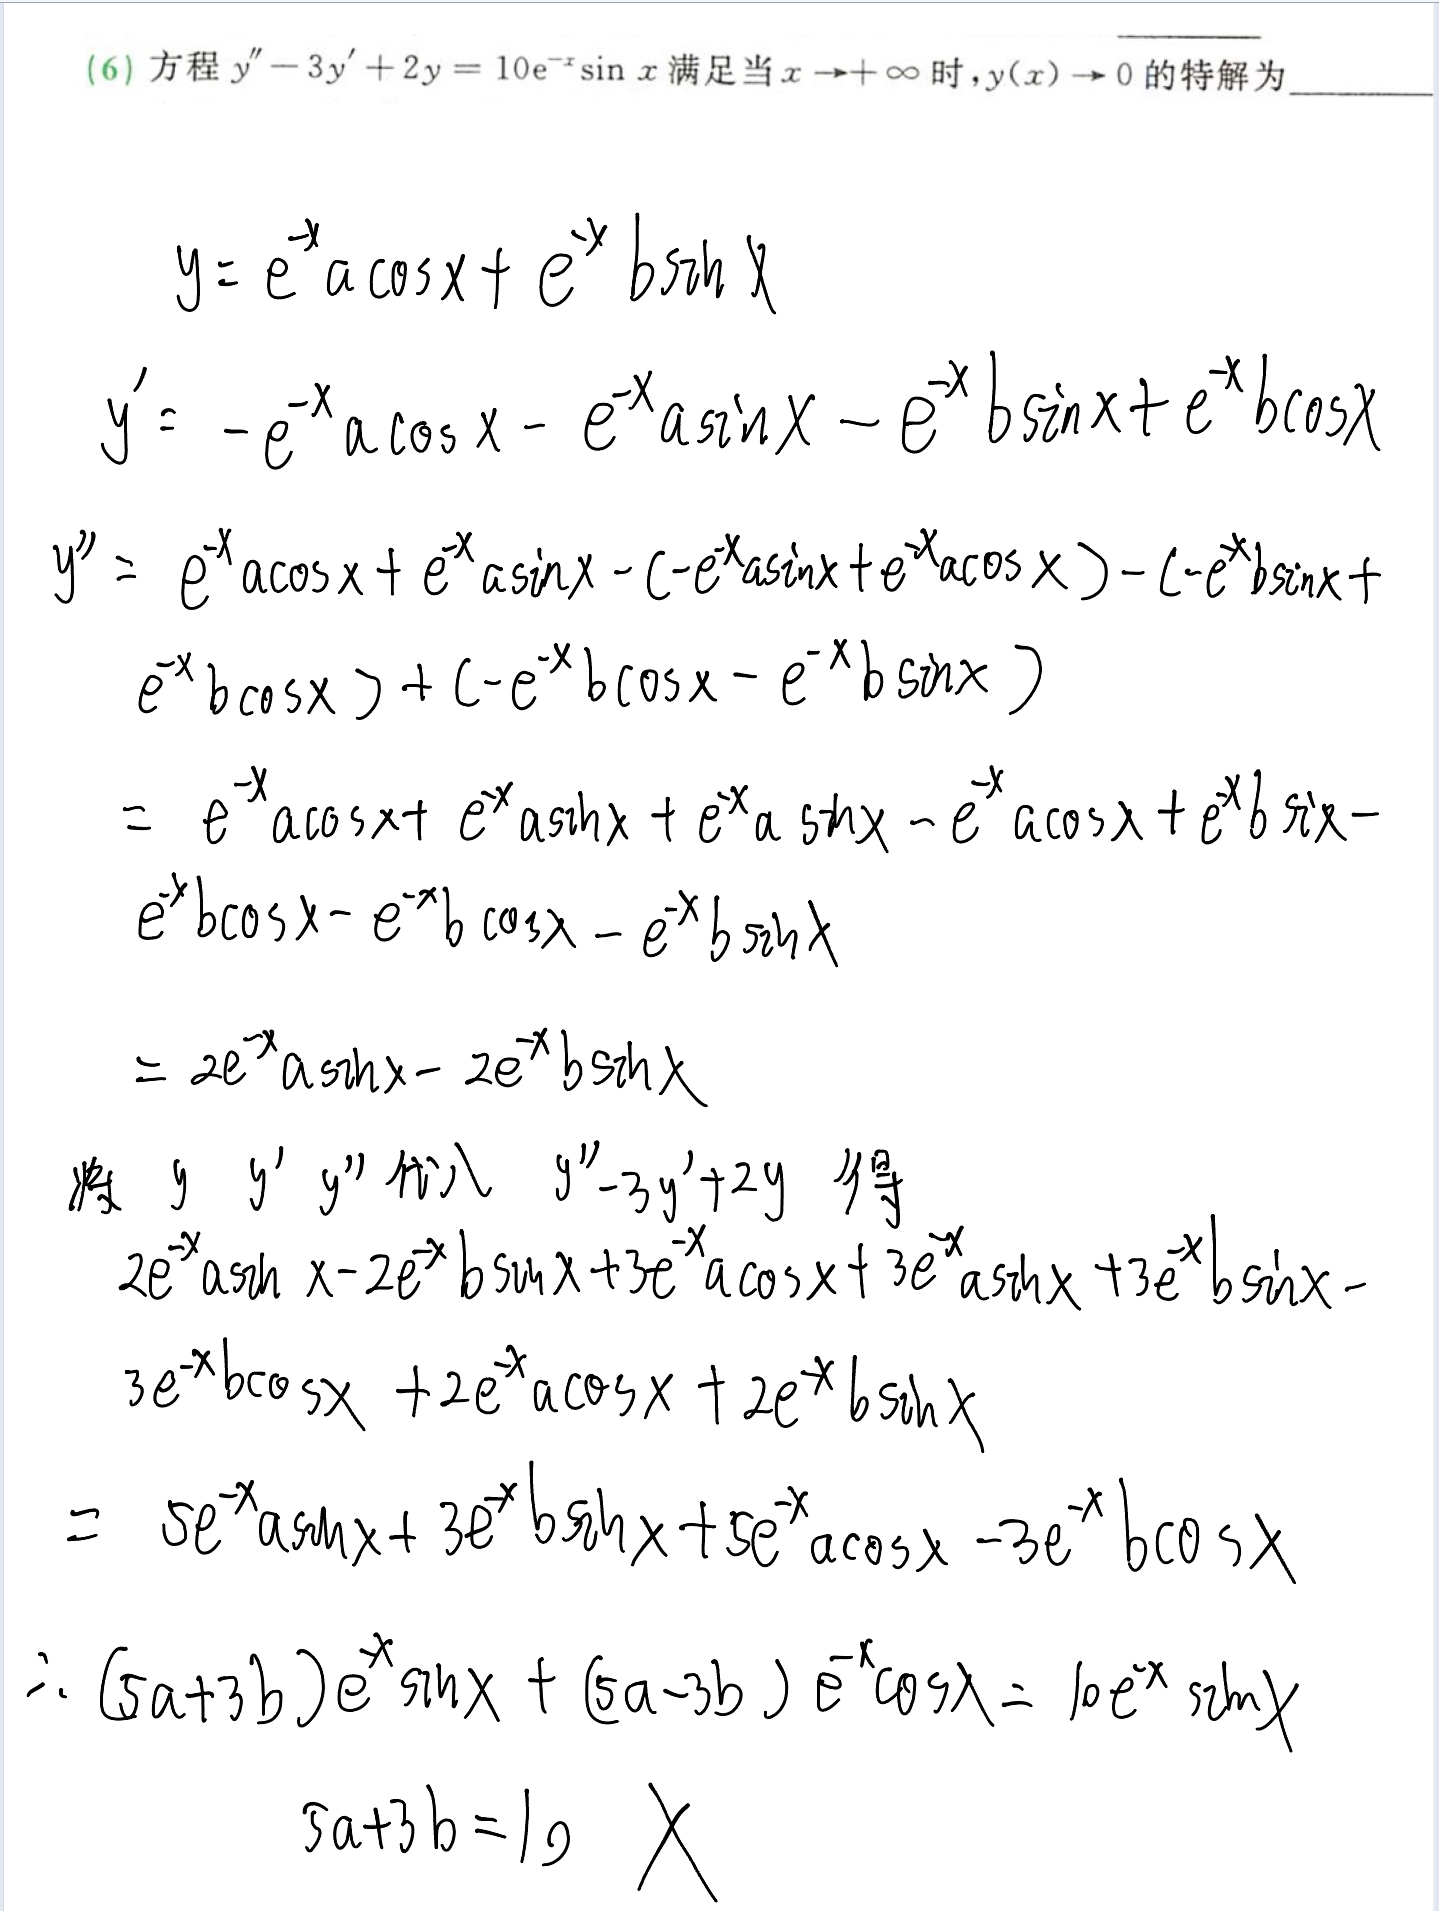 (6) 方程 y″－3y′＋2y＝10e⁻ˣsin x 满足当 x→＋∞ 时,y(x)→0 的特解为______
y = e⁻ˣacosx + e⁻ˣbsinx
y′ = -e⁻ˣacosx - e⁻ˣasinx - e⁻ˣbsinx + e⁻ˣbcosx
y″ = e⁻ˣacosx + e⁻ˣasinx - (-e⁻ˣasinx + e⁻ˣacosx) - (-e⁻ˣbsinx +
e⁻ˣbcosx) + (-e⁻ˣbcosx - e⁻ˣbsinx)
= e⁻ˣacosx + e⁻ˣasinx + e⁻ˣasinx - e⁻ˣacosx + e⁻ˣbsix -
e⁻ˣbcosx - e⁻ˣbcosx - e⁻ˣbsinx
= 2e⁻ˣasinx - 2e⁻ˣbsinx
将 y y′ y″ 代入 y″-3y′+2y 得
2e⁻ˣasinx - 2e⁻ˣbsinx + 3e⁻ˣacosx + 3e⁻ˣasinx + 3e⁻ˣbsinx -
3e⁻ˣbcosx + 2e⁻ˣacosx + 2e⁻ˣbsinx
= 5e⁻ˣasinx + 3e⁻ˣbsinx + 5e⁻ˣacosx - 3e⁻ˣbcosx
∴ (5a+3b)e⁻ˣsinx + (5a-3b)e⁻ˣcosx = 10e⁻ˣsinx
5a+3b=10 X